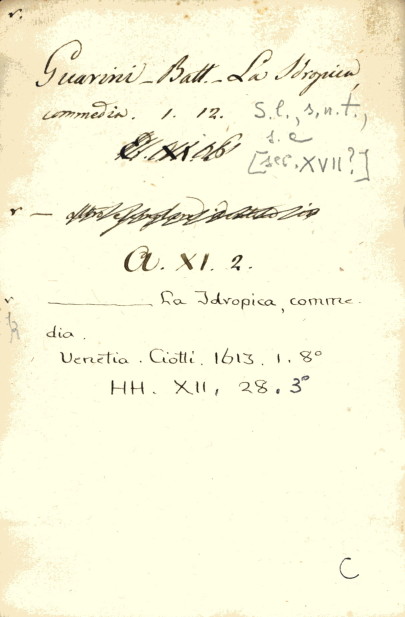 r.
Guarini - Batt. - La Idropica
commedia. 1. 12. S.l., s.n.t.,
s.a
[sec. XVII?]
r —
A. XI. 2.
r ———— La Idropica, comme-
dia.
Venetia. Ciotti. 1613. 1. 8°
HH. XII, 28. 3°
C